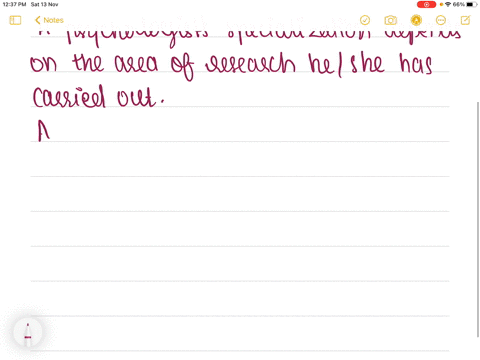 12:37 PM Sat 13 Nov
66%
Notes
A psychologists specialization depends
on the area of research he/she has
carried out.
A